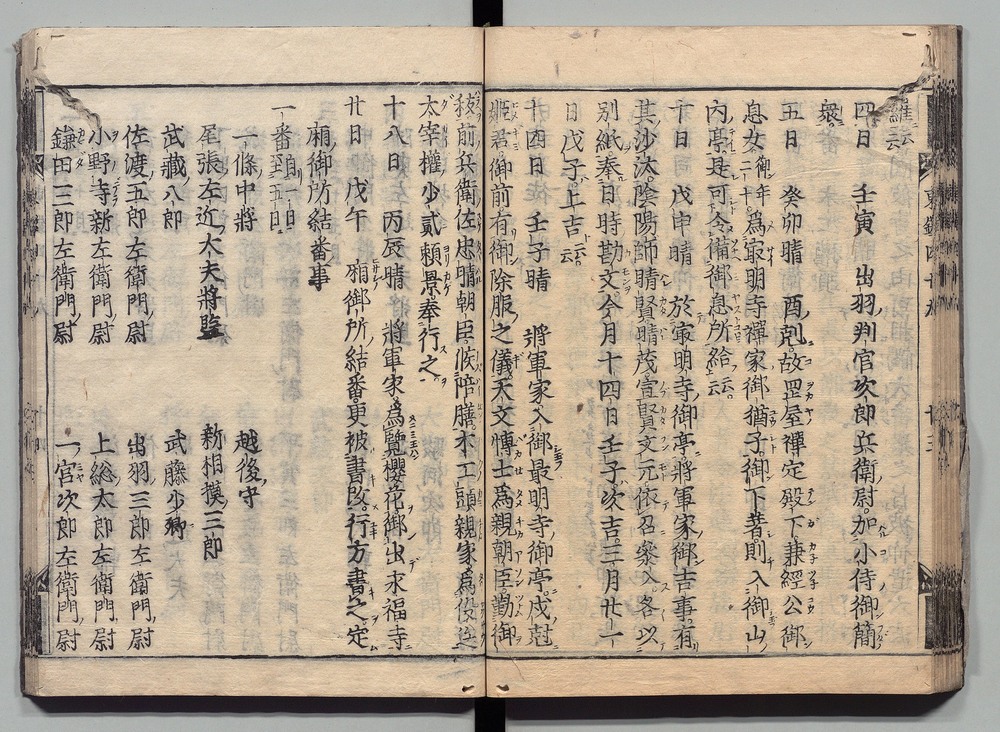 羅云云
四日 壬寅 出羽判官次郎兵衛尉加小侍御簡
衆
五日 癸卯晴 酉剋故岡屋禪定殿下兼經公御
息女御年二十為最明寺禪家御猶子御下著則入御山
内亭是可令備御息所給云云
十日 戊申晴 於最明寺御亭將軍家御吉事有
其沙汰陰陽師晴賢晴茂宣賢文元依召參入各以
別紙奉日時勘文今月十四日壬子次吉三月廿一
日戊子上吉云云
十四日 壬子晴 將軍家入御最明寺御亭戌尅
姫君御前有御除服之儀天文博士為親朝臣勤御
祓前兵衛佐忠晴朝臣候陪膳木工頭親家為役送
太宰權少貳頼景奉行之
十八日 丙辰晴 將軍家為覽櫻花御出永福寺
廿日 戊午 廂御所結番更被書改行方書之定
廂御所結番事
一番自一日至五日
一條中將 越後守
尾張左近大夫將監 新相摸三郎
武藏八郎 武藤少卿
佐渡五郎左衛門尉 出羽三郎左衛門尉
小野寺新左衛門尉 上総太郎左衛門尉
鎌田三郎左衛門尉 一宮次郎左衛門尉